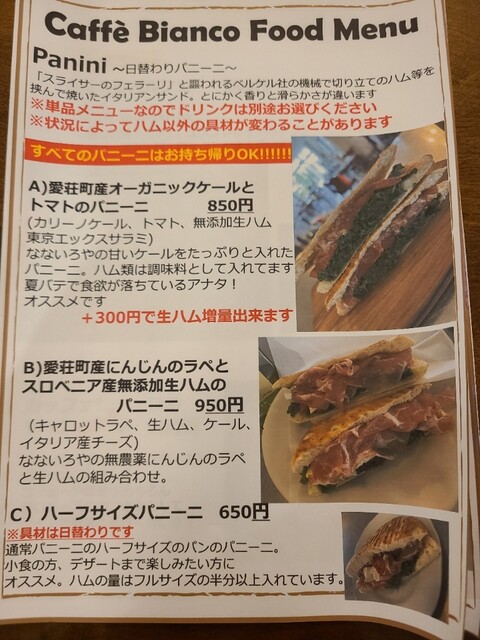 Caffè Bianco Food Menu
Panini ～日替わりパニーニ～
「スライサーのフェラーリ」と謳われるベルケル社の機械で切り立てのハム等を
挟んで焼いたイタリアンサンド。とにかく香りと滑らかさが違います
※単品メニューなのでドリンクは別途お選びください
※状況によってハム以外の具材が変わることがあります
すべてのパニーニはお持ち帰りOK!!!!!!
A)愛荘町産オーガニックケールと
トマトのパニーニ 850円
(カリーノケール、トマト、無添加生ハム
東京エックスサラミ)
なないろやの甘いケールをたっぷりと入れた
パニーニ。ハム類は調味料として入れてます
夏バテで食欲が落ちているアナタ！
オススメです
＋300円で生ハム増量出来ます
B)愛荘町産にんじんのラペと
スロベニア産無添加生ハムの
パニーニ 950円
(キャロットラペ、生ハム、ケール、
イタリア産チーズ)
なないろやの無農薬にんじんのラペ
と生ハムの組み合わせ。
C）ハーフサイズパニーニ 650円
※具材は日替わりです
通常パニーニのハーフサイズのパンのパニーニ。
小食の方、デザートまで楽しみたい方に
オススメ。ハムの量はフルサイズの半分以上入れています。